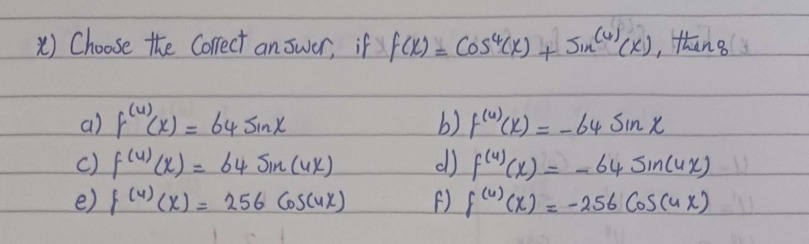 x) Choose the correct answer, if f(x) = Cos⁴(x) + Sin⁽⁴⁾(x), then:
a) f⁽⁴⁾(x) = 64 Sinx
b) f⁽⁴⁾(x) = -64 Sin x
c) f⁽⁴⁾(x) = 64 Sin(4x)
d) f⁽⁴⁾(x) = -64 Sin(4x)
e) f⁽⁴⁾(x) = 256 Cos(4x)
f) f⁽⁴⁾(x) = -256 Cos(4x)